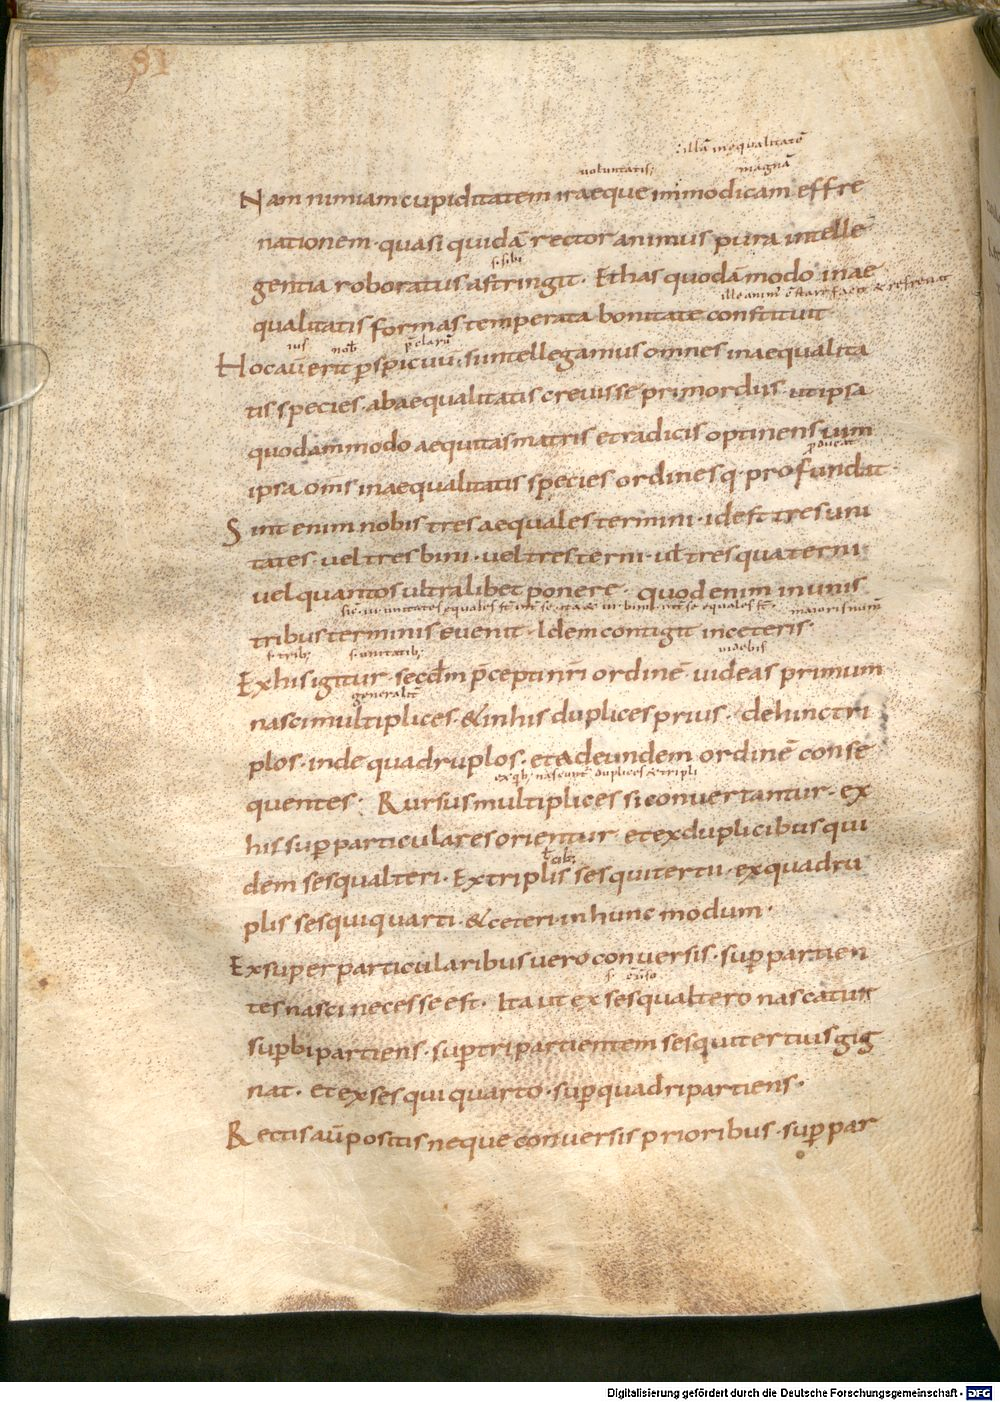 81
:illā inequalitatē
voluntatis; magnā
Nam nimiam cupiditatem iraeque immodicam effre
nationem · quasi quidā rector animus pura intelle
s. sibi
gentia roboratus astringit · Et has quodāmodo inae
qualitatis formas temperata bonitate constituit
Hoc aūerit ꝑspicuū · si intellegamus omnes inaequalita
tis species · ab aequalitatis crevisse primordiis · ut ipsa
quodammodo aequitas matris et radicis optinens uim
ꝓducat
ipsa om̄s inaequalitatis species ordinesq· profundat
Sint enim nobis tres aequales termini · id est tres uni
tates · vel tres bini · vel tres terni · ul̄ tres quaterni ·
vel quantos ultra libet ponere · quod enim in unis
maioris num̄
tribus terminis evenit · Idem contigit in ceteris ·
s. trib; s. unitatib; videbis
Ex his igitur · secd̄m p̄cepti nr̄i ordinē · videas primum
generalit̄
nasci multiplices · & in his duplices prius · dehinc tri
plos · inde quadruplos · et ad eundem ordinē conse
ex qb; nascunt̄ duplices & tripli
quentes ; Rursus multiplices si convertantur · ex
his suꝑparticulares orientur · et ex duplicibus qui
dem sesqualteri · Ex triplis sesquitertii · ex quadru
plis sesquiquarti · & ceteri · in hunc modum ·
Ex superparticularibus vero conversis · suꝑpartien
tes nasci necesse est · Ita ut ex sesqualtero nascatur
suꝑbipartiens · suꝑtripartientem sesquitertius gig
nat · et ex sesquiquarto · suꝑquadripartiens ·
Rectis aū positis neque conversis prioribus · suꝑpar
Digitalisierung gefördert durch die Deutsche Forschungsgemeinschaft - DFG